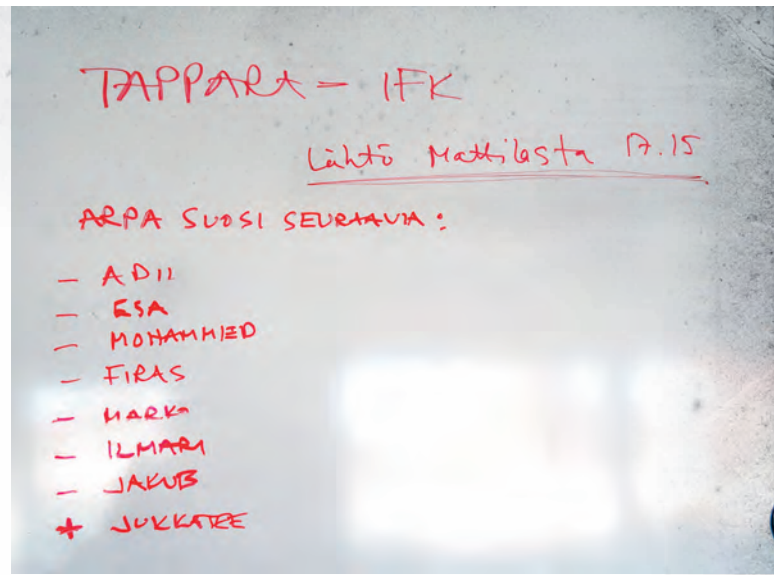 TAPPARA - IFK
Lähtö Mattilasta 17.15
ARPA SUOSI SEURAAVIA:
- ADII
- ESA
- MOHAMMED
- FIRAS
- MARKO
- ILMARI
- JAKUB
+ JUKKATEE